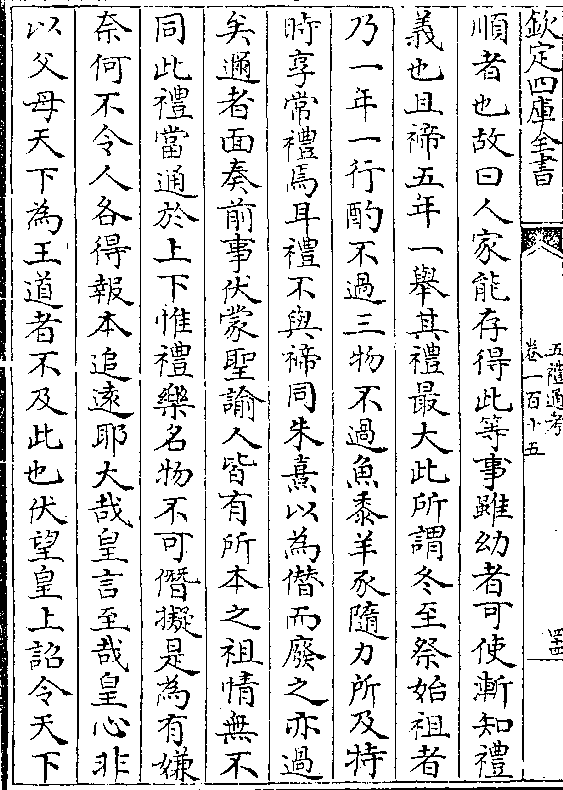 欽定四庫全書
五禮通考
卷一百十五
順者也故曰人家能存得此等事雖幼者可使漸知禮
義也且禘五年一舉其禮最大此所謂冬至祭始祖者
乃一年一行酌不過三物不過魚黍羊豕隨力所及特
時享常禮焉耳禮不與禘同朱熹以為僭而廢之亦過
矣邇者面奏前事伏蒙聖諭人皆有所本之祖情無不
同此禮當通於上下惟禮樂名物不可僭擬是為有嫌
奈何不令人各得報本追遠耶大哉皇言至哉皇心非
以父母天下為王道者不及此也伏望皇上詔令天下